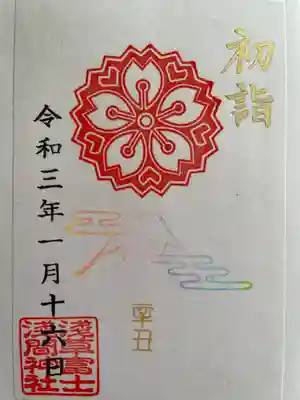 初詣
令和三年一月十六日
辛丑
淺草富士
淺間神社